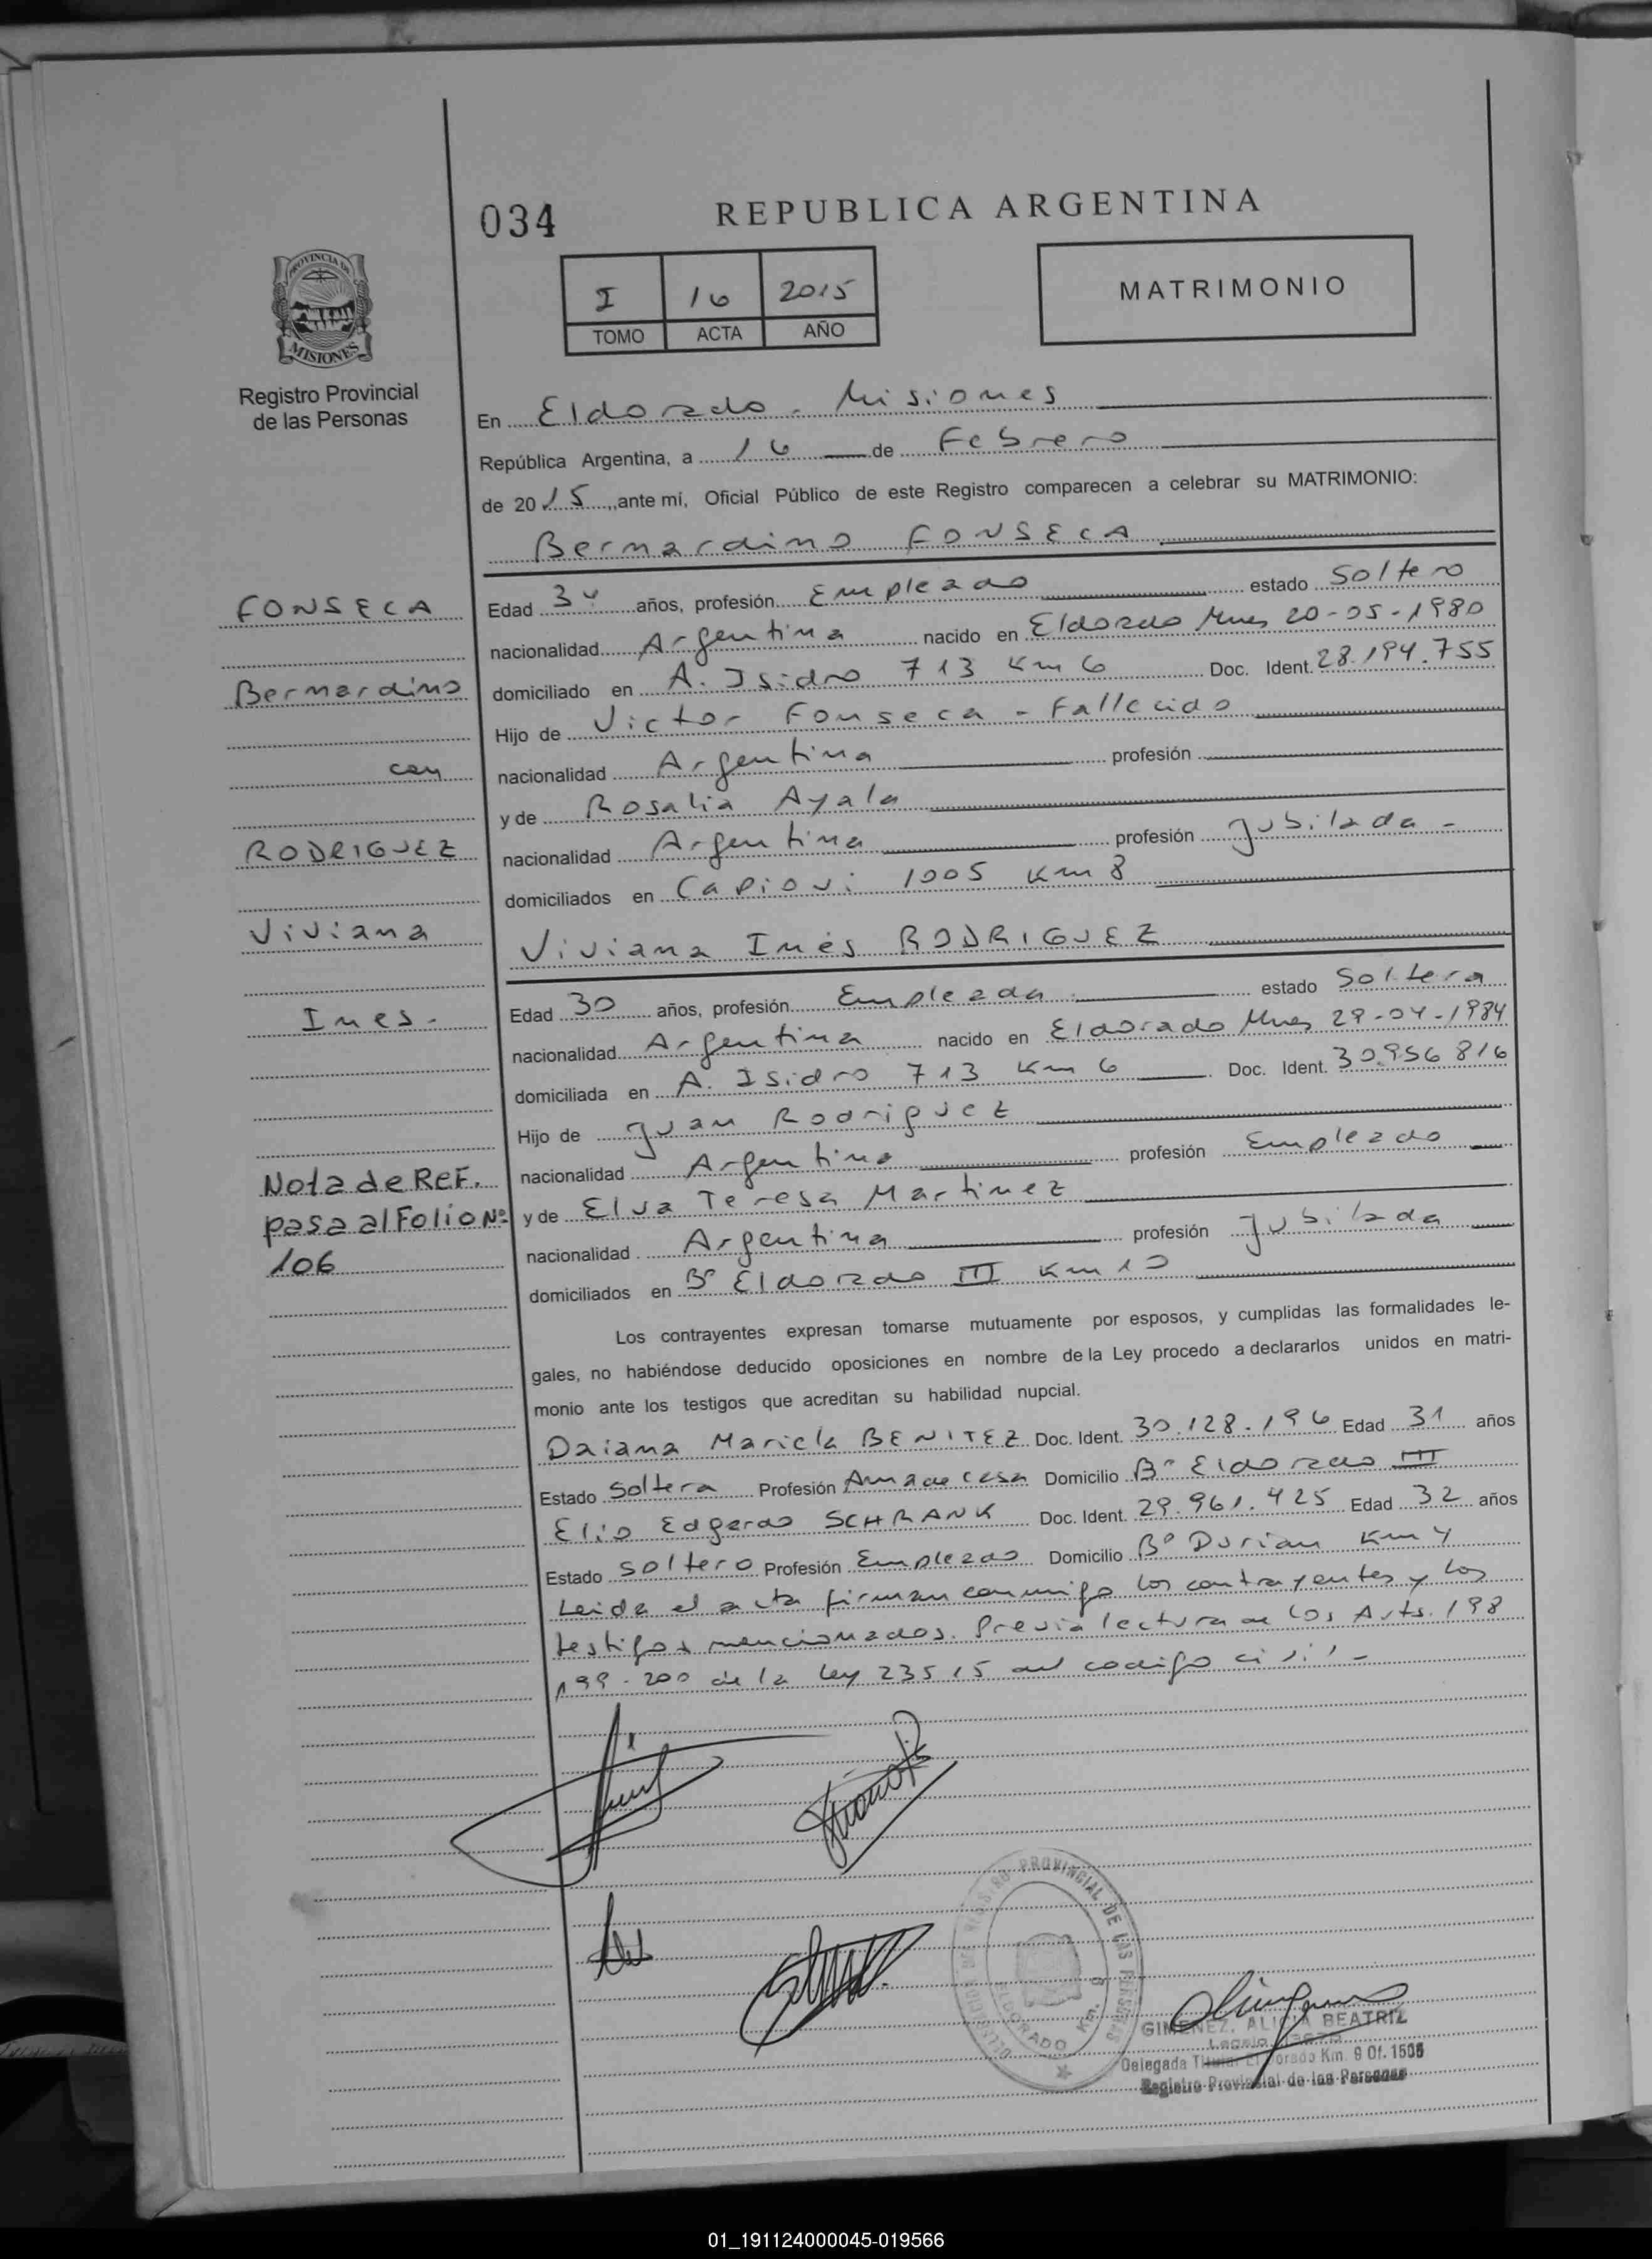 034
REPUBLICA ARGENTINA
PROVINCIA DE
MISIONES
Registro Provincial
de las Personas
I 16 2015
TOMO ACTA AÑO
MATRIMONIO
En Eldorado - Misiones
República Argentina, a 16 de Febrero
de 2015, ante mí, Oficial Público de este Registro comparecen a celebrar su MATRIMONIO:
Bernardino FONSECA
FONSECA
Bernardino
con
RODRIGUEZ
Viviana
Ines.-
Nota de REF.
pasa al Folio Nº
106
Edad 34 años, profesión Empleado estado Soltero
nacionalidad Argentina nacido en Eldorado Mnes 20-05-1980
domiciliado en A. Isidro 713 Km 6 Doc. Ident. 28.194.755
Hijo de Victor Fonseca - Fallecido
nacionalidad Argentina profesión
y de Rosalia Ayala
nacionalidad Argentina profesión Jubilada -
domiciliados en Capiovi 1005 Km 8
Viviana Inés RODRIGUEZ
Edad 30 años, profesión Empleada estado Soltera
nacionalidad Argentina nacido en Eldorado Mnes 29-04-1984
domiciliada en A. Isidro 713 Km 6 Doc. Ident. 30.956 816
Hijo de Juan Rodriguez
nacionalidad Argentino profesión Empleado
y de Elva Teresa Martinez
nacionalidad Argentina profesión Jubilada
domiciliados en Bº Eldorado III Km 10
Los contrayentes expresan tomarse mutuamente por esposos, y cumplidas las formalidades le-
gales, no habiéndose deducido oposiciones en nombre de la Ley procedo a declararlos unidos en matri-
monio ante los testigos que acreditan su habilidad nupcial.
Daiana Mariela BENITEZ Doc. Ident. 30.128.196 Edad 31 años
Estado Soltera Profesión Ama de casa Domicilio Bº Eldorado III
Elio Edgardo SCHRANK Doc. Ident. 29.961.425 Edad 32 años
Estado Soltero Profesión Empleado Domicilio Bº Dorian Km 4
Leida el acta firman conmigo los contrayentes y los
testigos mencionados. Previa lectura de los Arts. 198
199-200 de la ley 23515 del codigo civil -
PROVINCIAL DE LAS PERSONAS
ELDORADO Km. 9
GIMENEZ, ALICIA BEATRIZ
Delegada Titular Eldorado Km. 9 Of. 1505
Registro Provincial de las Personas
01_191124000045-019566